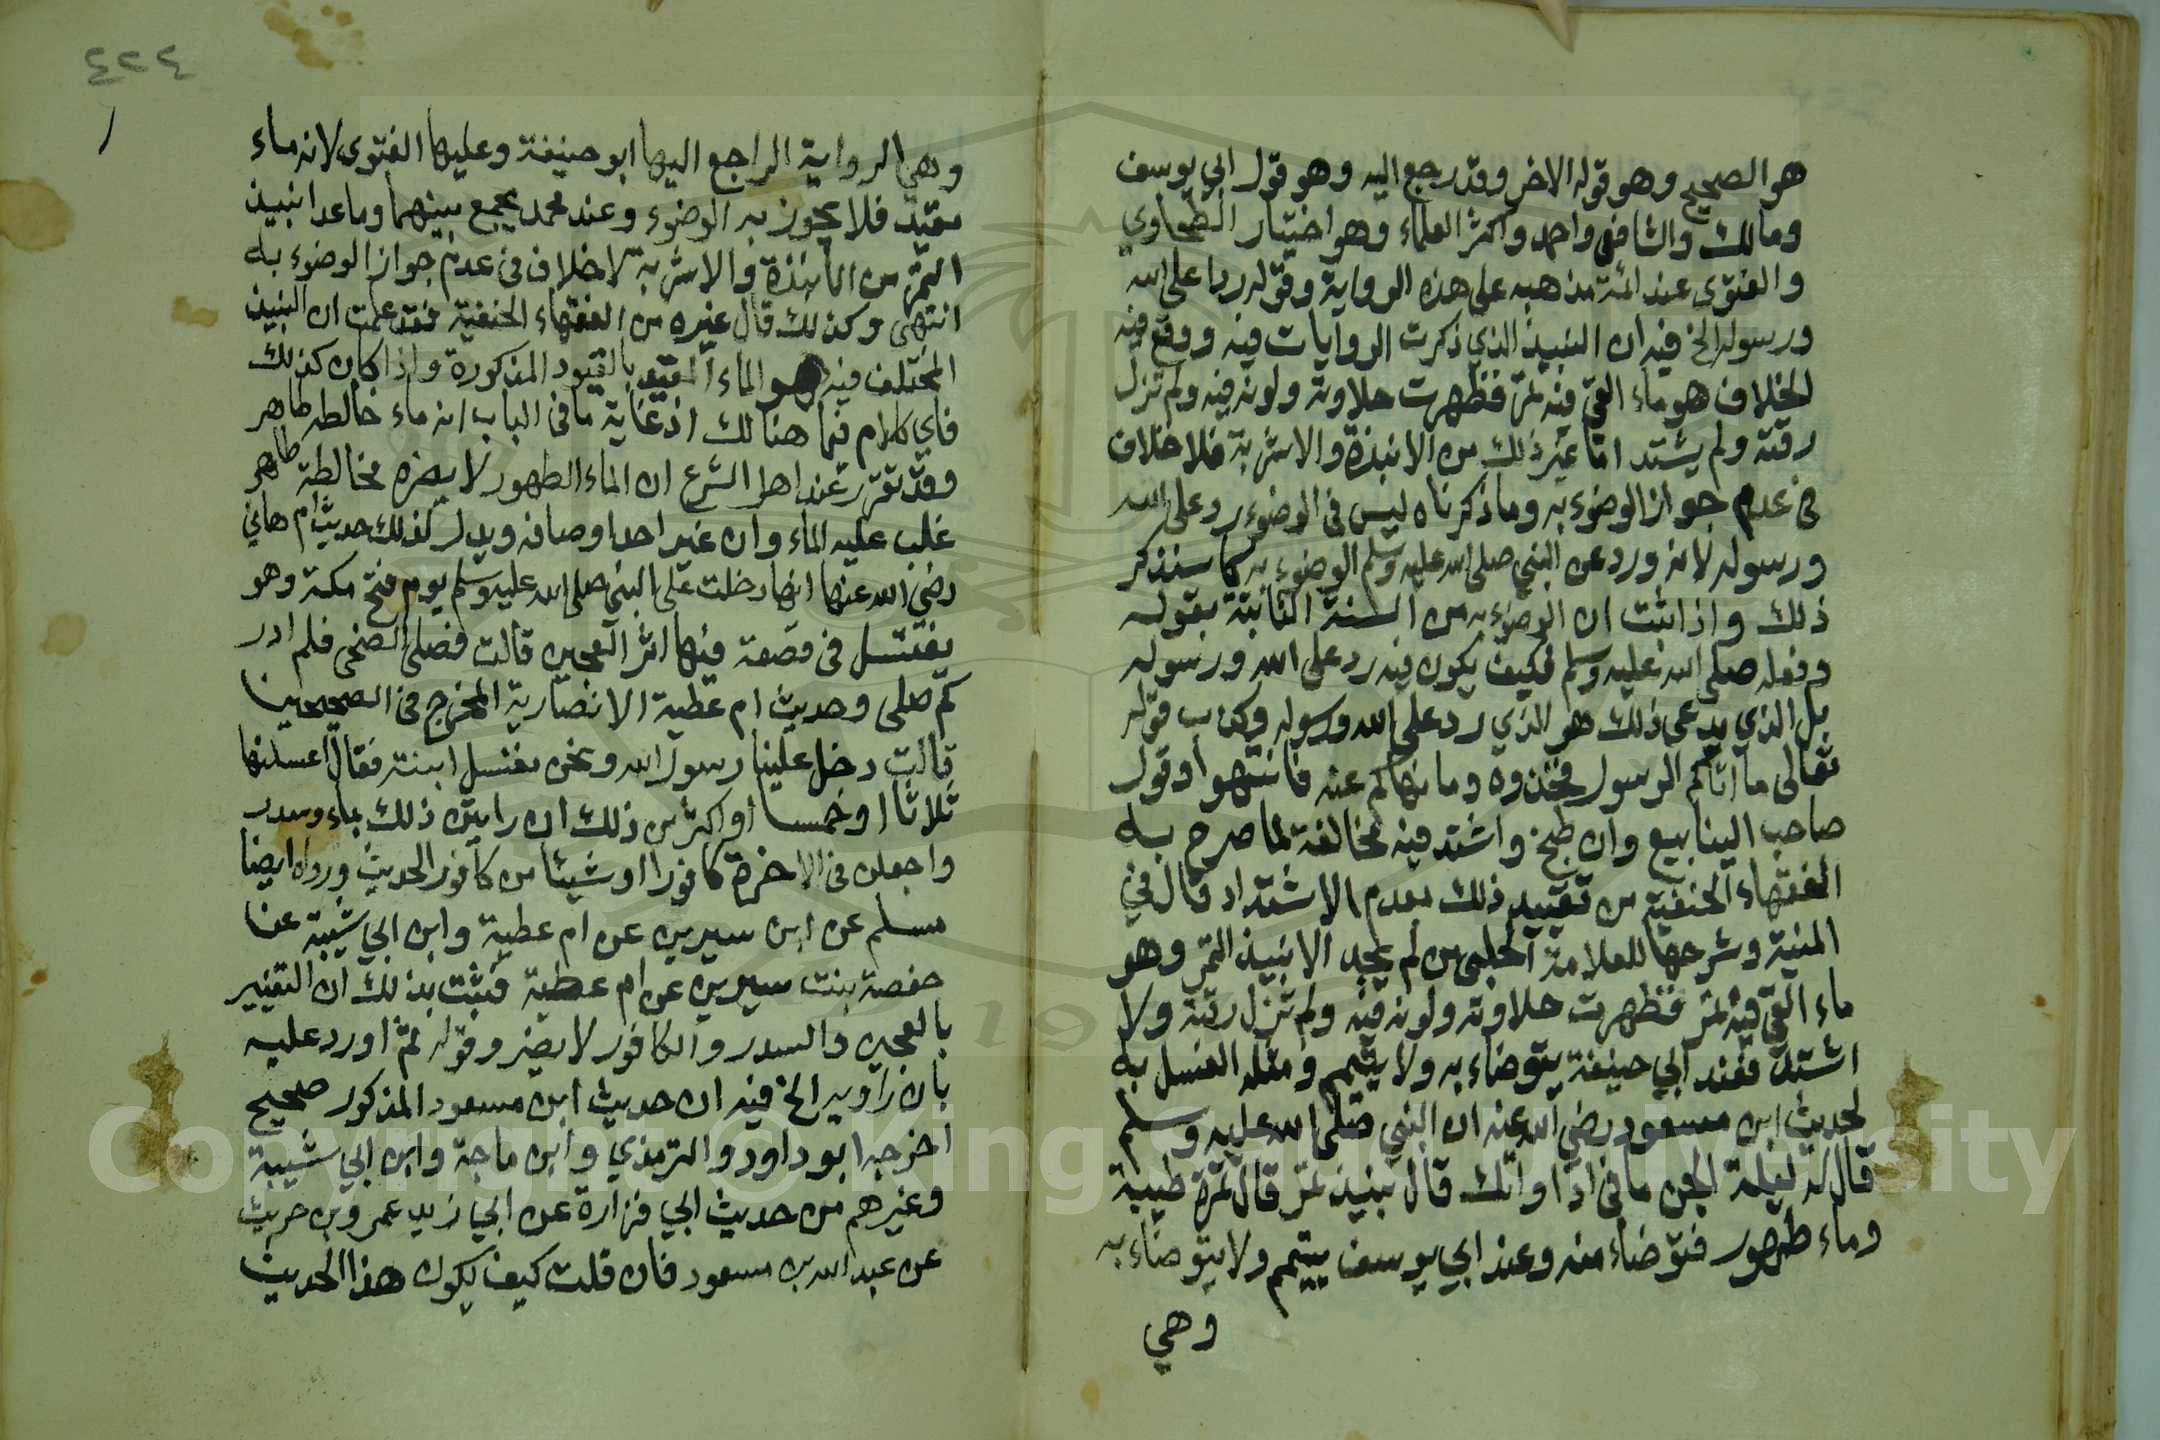 هو الصحيح وهو قوله الاخر وقد رجع اليه وهو قول ابي يوسف
ومالك والشافعي واحمد واكثر العلماء وهو اختيار الطحاوي
والفتوى عند ائمة مذهبه على هذه الرواية وقوله ردا على الله
ورسوله الخ فيه ان النبيذ الذي ذكرت الروايات فيه ووقع فيه
الخلاف هو ماء القي فيه تمر فظهرت حلاوته ولونه فيه ولم تزل
رقته ولم يشتد اما غير ذلك من الانبذة والاشربة فلا خلاف
في عدم جواز الوضوء به وما ذكرناه ليس في الوضوء رد على الله
ورسوله لانه ورد عن النبي صلى الله عليه وسلم الوضوء به كما سنذكر
ذلك واذا ثبت ان الوضوء به من السنة الثابتة بقوله
وفعله صلى الله عليه وسلم فكيف يكون فيه رد على الله ورسوله
بل الذي يدعي ذلك هو الذي رد على الله ورسوله وكذب قوله
تعالى ما اتاكم الرسول فخذوه وما نهاكم عنه فانتهوا وقول
صاحب الينابيع وان طبخ واشتد فيه مخالفة لما صرح به
الفقهاء الحنفية من تقييد ذلك بعدم الاشتداد قال في
المنية وشرحها للعلامة الحلبي من لم يجد الا نبيذ التمر وهو
ماء القي فيه تمر فظهرت حلاوته ولونه فيه ولم تزل رقته ولا
اشتد فعند ابي حنيفة يتوضاء به ولا يتيمم ومثله الغسل به
لحديث ابن مسعود رضي الله عنه ان النبي صلى الله عليه وسلم
قال له ليلة الجن ما في اداواتك قال نبيذ تمر قال تمرة طيبة
وماء طهور فتوضاء منه وعند ابي يوسف يتيمم ولا يتوضاء به
وهي
٤٢٤
وهي الرواية الراجع اليها ابو حنيفة وعليها الفتوى لانه ماء
مقيد فلا يجوز به الوضوء وعند محمد يجمع بينهما وما عدا نبيذ
التمر من الانبذة والاشربة لا خلاف في عدم جواز الوضوء به
انتهى وكذلك قال غيره من الفقهاء الحنفية فقد علمت ان النبيذ
المختلف فيه هو الماء المقيد بالقيود المذكورة واذا كان كذلك
فاي كلام فيما هنالك اذ غاية ما في الباب انه ماء خالطه طاهر
وقد تقرر عند اهل الشرع ان الماء الطهور لا يضره مخالطة طاهر
غلب عليه الماء وان غير احد اوصافه ويدل لذلك حديث ام هاني
رضي الله عنها انها دخلت على النبي صلى الله عليه وسلم يوم فتح مكة وهو
يغتسل في قصعة فيها اثر العجين قالت فصلى الضحى فلم ادر
كم صلى وحديث ام عطية الانصارية المخرج في الصحيحين
قالت دخل علينا رسول الله ونحن نغسل ابنته فقال اغسلنها
ثلاثا او خمسا او اكثر من ذلك ان رايتن ذلك بماء وسدر
واجعلن في الاخرة كافورا او شيئا من كافور الحديث ورواه ايضا
مسلم عن ابن سيرين عن ام عطية وابن ابي شيبة عن
حفصة بنت سيرين عن ام عطية فثبت بذلك ان التغيير
بالعجين والسدر والكافور لا يضر وقوله ثم اورد عليه
بان راويه الخ فيه ان حديث ابن مسعود المذكور صحيح
اخرجه ابو داود والترمذي وابن ماجة وابن ابي شيبة
وغيرهم من حديث ابي فزارة عن ابي زيد عمرو بن حريث
عن عبد الله بن مسعود فان قلت كيف يكون هذا الحديث
Copyright © King Saud University